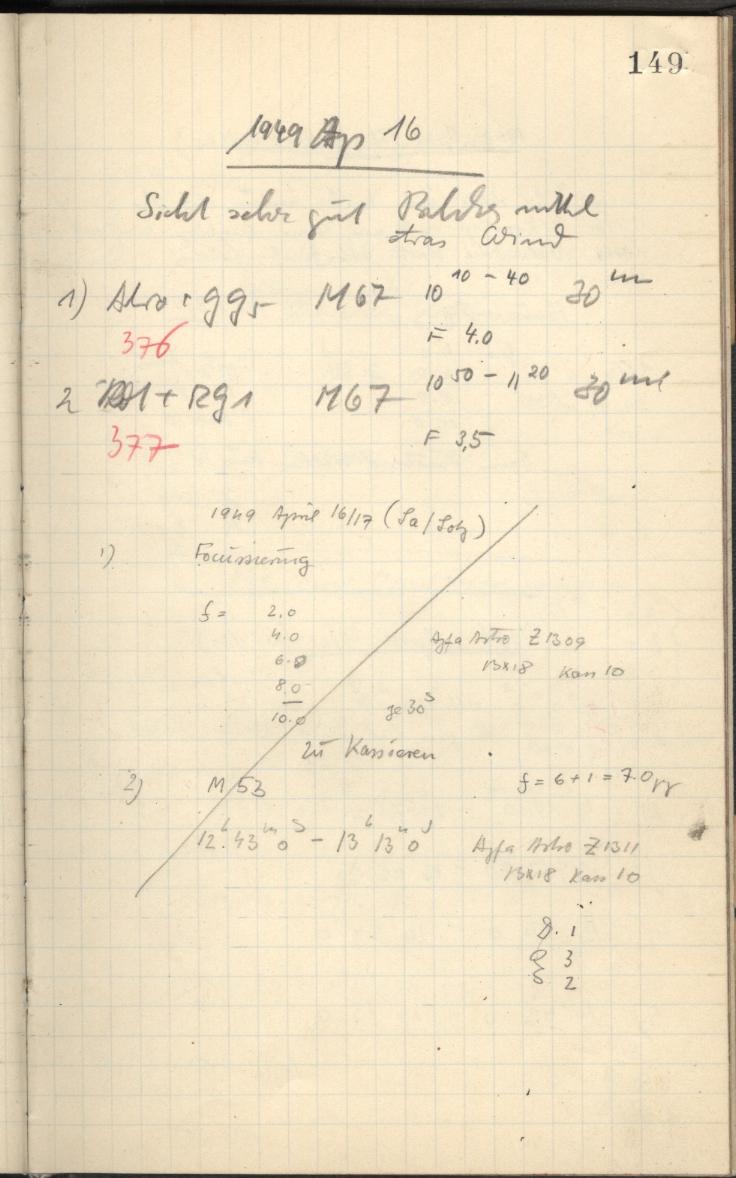 149
1949 Ap 16
Sicht sehr gut
etwas Wind
1) Astro + gg5 M67 10 10 - 40 30 m
376 F 4.0
2 + Rg1 M67 10 50 - 11 20 30 m
377 F 3,5
1949 April 16/17 (Sa/
1) Focussierung
f = 2.0
4.0 Agfa Astro Z1309
6.0 13x18 Kass 10
8.0
10.0 je 30 s
zu Kassieren
2) M 53 f = 6 + 1 = 7.0
12 h 43 m 0 s - 13 h 13 m 0 s Agfa Astro Z1311
13x18 Kass 10
D. 1
3
2